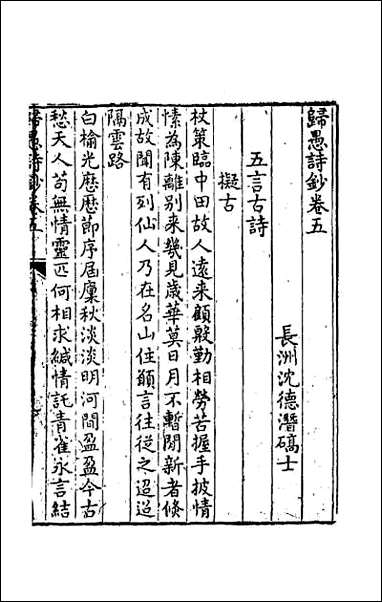 歸愚詩鈔卷五
長洲沈德潛碻士
五言古詩
擬古
杖策臨中田故人遠来顧殷勤相勞苦握手披情
愫為陳離别来幾見歲華莫日月不暫閒新者倏
成故聞有列仙人乃在名山住願言往從之迢迢
隔雲路
白榆光厯厯節序屆廩秋淡淡明河間盈盈今古
愁天人苟無情靈匹何相求緘情託青雀永言結
歸愚詩鈔卷五